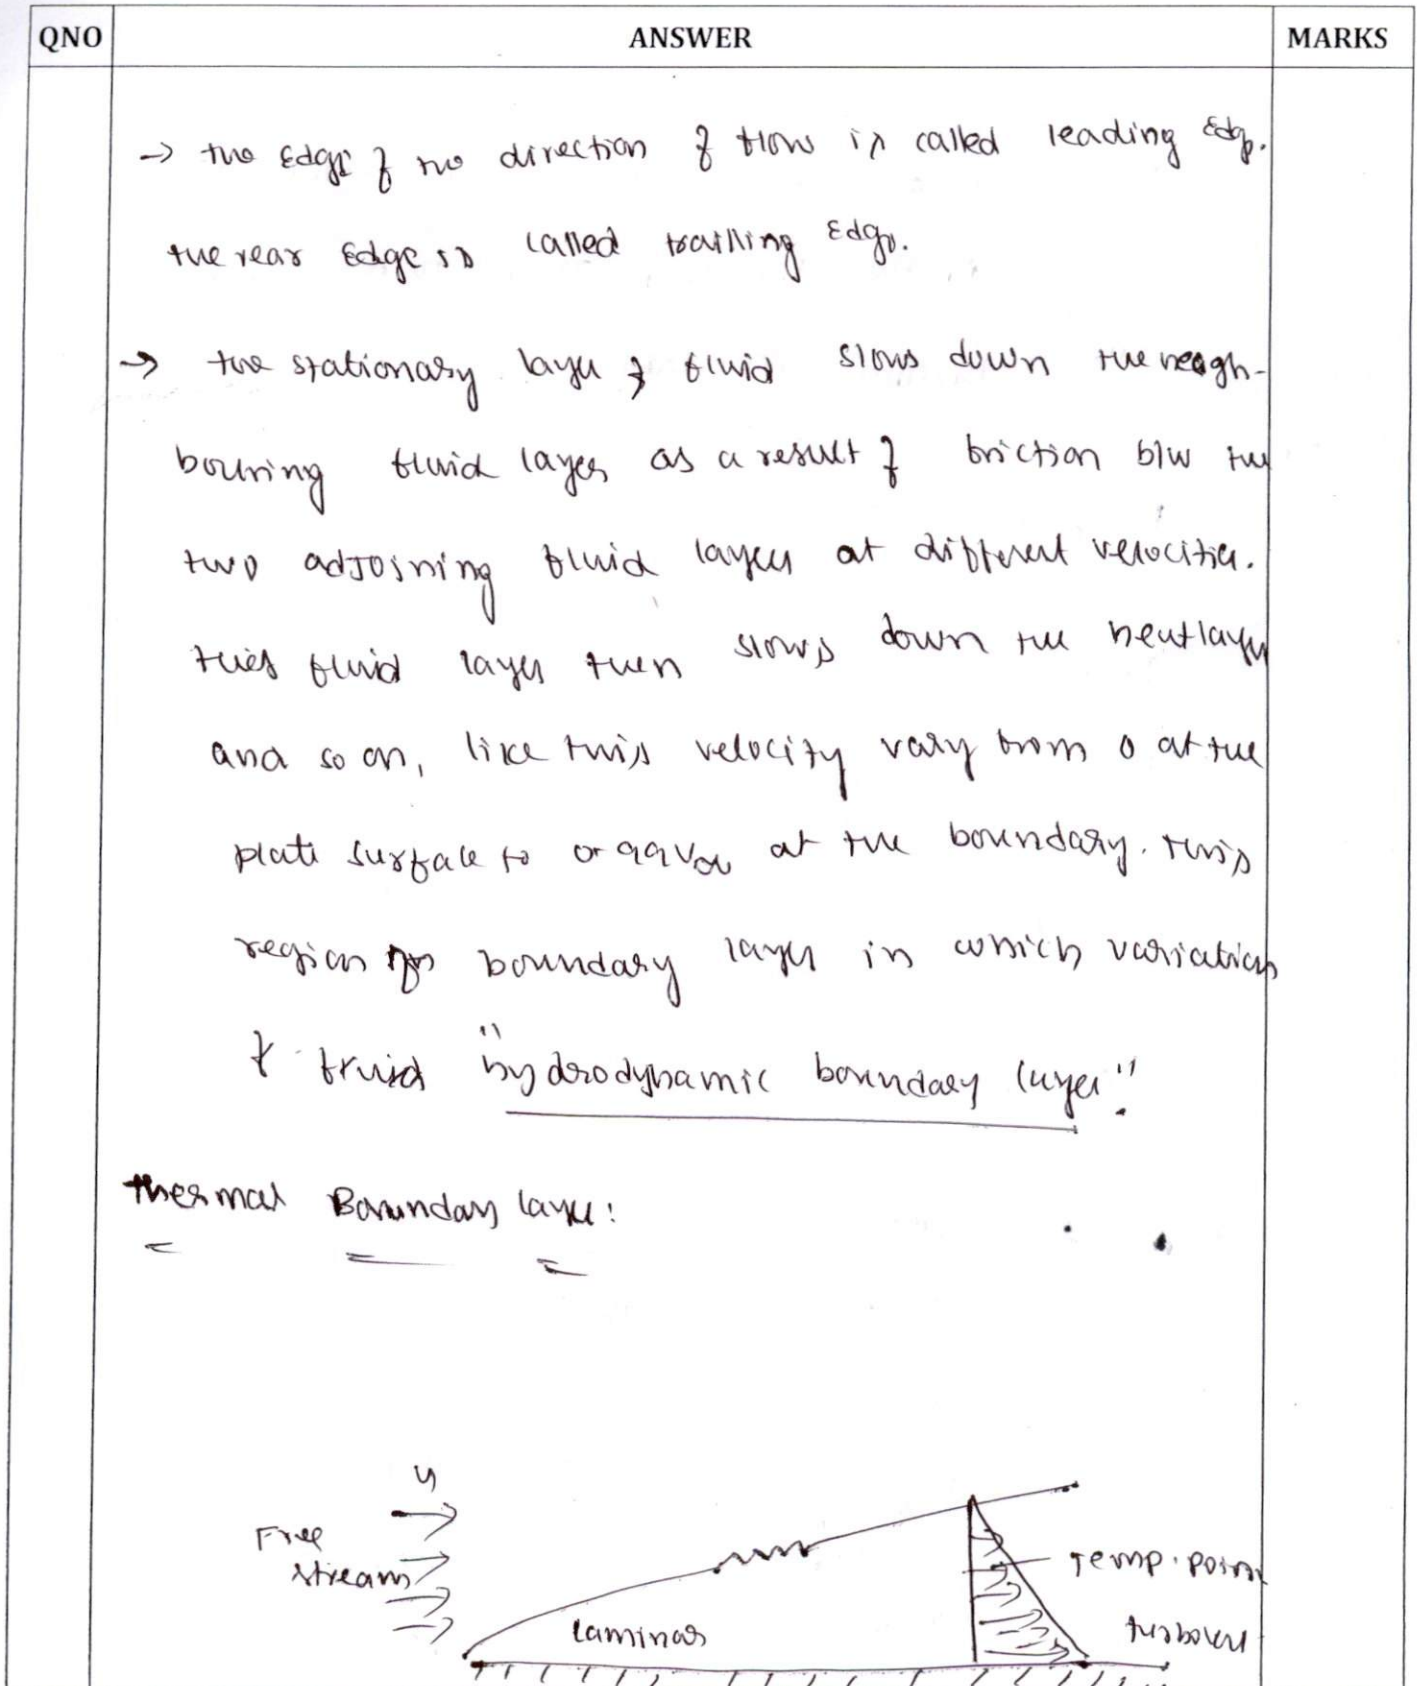 QNO ANSWER MARKS
→ the Edge of the direction of flow is called leading Edge.
the rear Edge is called trailling Edge.
→ the stationary layer of fluid slows down the neagh-
bouring fluid layer as a result of friction b/w the
two adjoining fluid layers at different velocities.
this fluid layer then slows down the next layer
and so on, like this velocity vary from 0 at the
plate surface to 0.99V∞ at the boundary. this
region boundary layer in which variation
of fluid "hydrodynamic boundary layer".
thermal Boundary layer:
Free
stream
laminar
Temp. point
turbulent